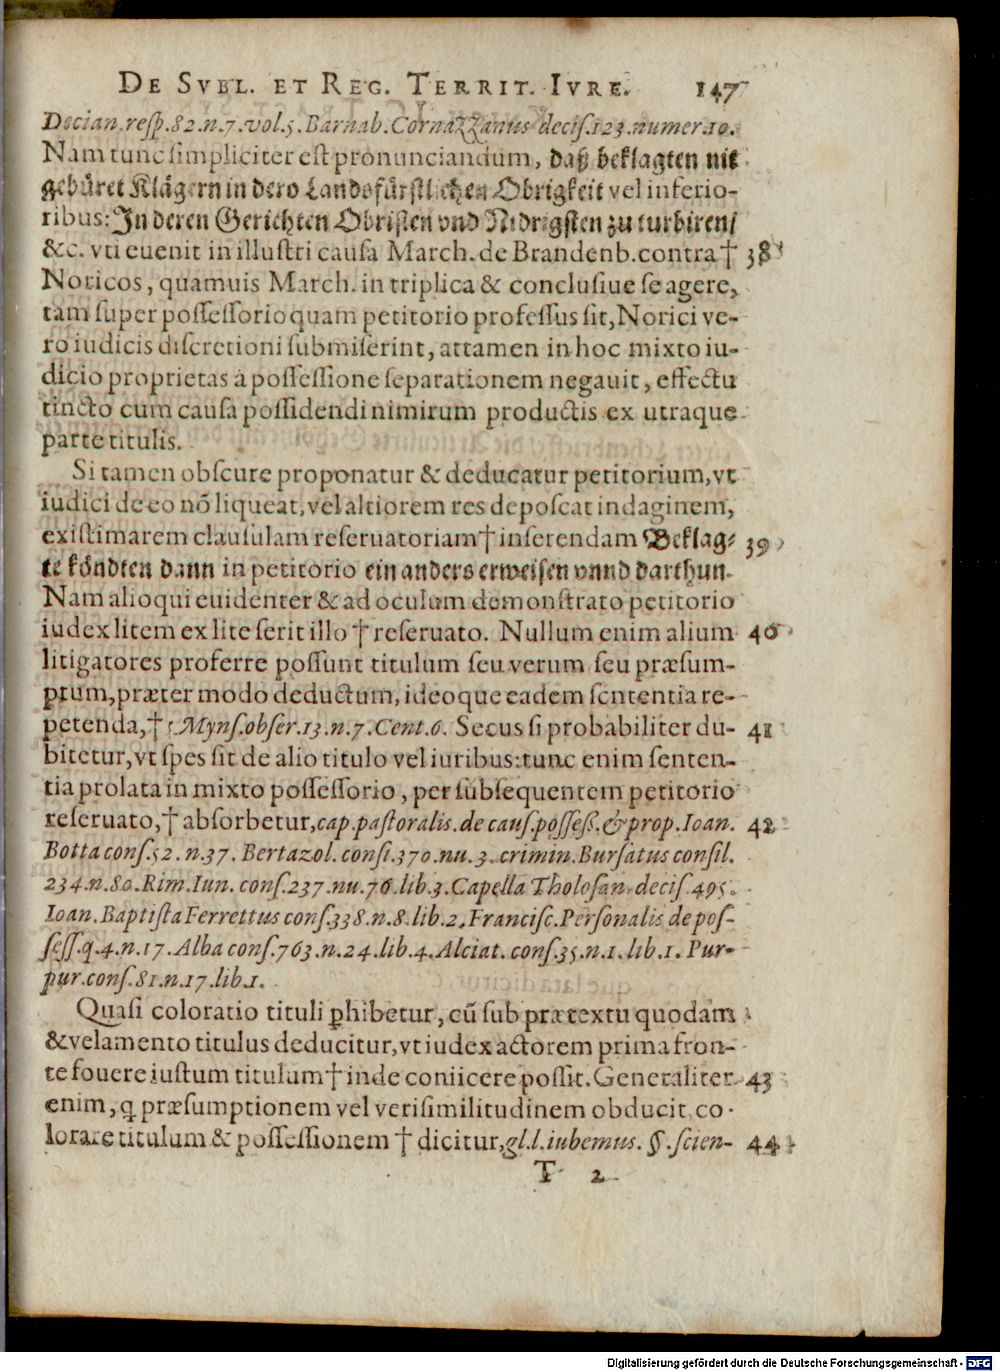 DE SVBL. ET REG. TERRIT. IVRE. 147
Decian. resp. 82. n. 7. vol. 5. Barnab. Cornazzanus decis. 123. numer. 10.
Nam tunc simpliciter est pronunciandum, daß beklagten nit
gebüret Klägern in dero Landsfürstlichen Obrigkeit vel inferio-
ribus: In deren Gerichten Obristen vnd Nidrigsten zu turbiren/
&c. vti euenit in illustri causa March. de Brandenb. contra † 38
Noricos, quamuis March. in triplica & conclusiue se agere,
tam super possessorio quam petitorio professus sit, Norici ve-
ro iudicis discretioni submiserint, attamen in hoc mixto iu-
dicio proprietas à possessione separationem negauit, effectu
tincto cum causa possidendi nimirum productis ex utraque
parte titulis.
Si tamen obscure proponatur & deducatur petitorium, vt
iudici de eo nõ liqueat, vel altiorem res deposcat indaginem,
existimarem clausulam reseruatoriam † inserendam Beklag- 39
te köndten dann in petitorio ein anders erweisen vnnd darthun.
Nam alioqui euidenter & ad oculum demonstrato petitorio
iudex litem ex lite serit illo † reseruato. Nullum enim alium 40
litigatores proferre possunt titulum seu verum seu præsum-
ptum, præter modo deductum, ideoque eadem sententia re-
petenda, † Myns. obser. 13. n. 7. Cent. 6. Secus si probabiliter du- 41
bitetur, vt spes sit de alio titulo vel iuribus: tunc enim senten-
tia prolata in mixto possessorio, per subsequentem petitorio
reseruato, † absorbetur, cap. pastoralis. de caus. posseß. & prop. Ioan. 42
Botta cons. 52. n. 37. Bertazol. consi. 370. nu. 3. crimin. Bursatus consil.
234. n. 80. Rim. Iun. cons. 237. nu. 76. lib. 3. Capella Tholosan. decis. 495.
Ioan. Baptista Ferrettus cons. 338. n. 8. lib. 2. Francisc. Personalis de pos-
sess. q. 4. n. 17. Alba cons. 763. n. 24. lib. 4. Alciat. cons. 35. n. 1. lib. 1. Pur-
pur. cons. 81. n. 17. lib. 1.
Quasi coloratio tituli ꝓhibetur, cũ sub prætextu quodam
& velamento titulus deducitur, vt iudex actorem prima fron-
te fouere iustum titulum † inde coniicere possit. Generaliter 43
enim, ꝗ præsumptionem vel verisimilitudinem obducit, co-
lorare titulum & possessionem † dicitur, gl. l. iubemus. §. scien- 44
T 2
Digitalisierung gefördert durch die Deutsche Forschungsgemeinschaft - DFG